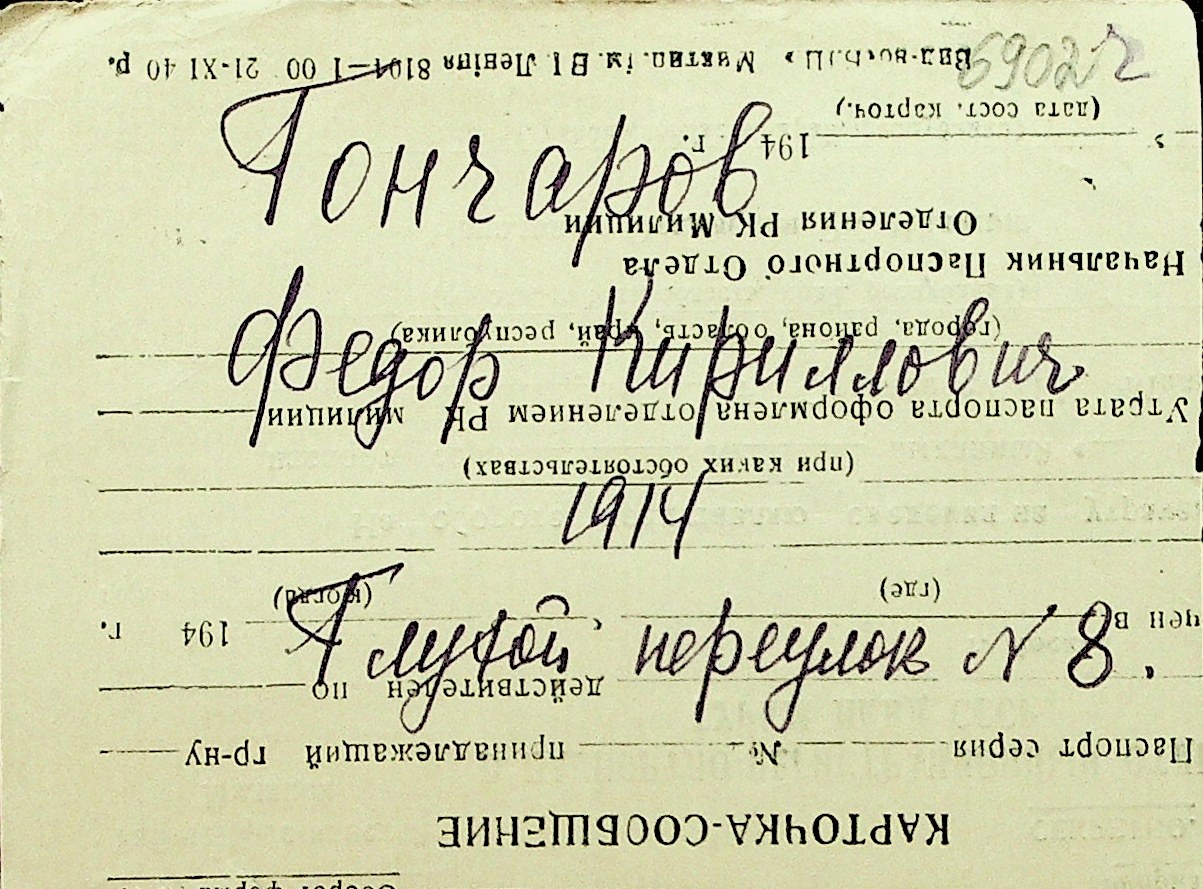 69022
Гончаров
Федор Кириллович
1914
Глухой переулок N 8.
КАРТОЧКА-СООБЩЕНИЕ
Паспорт серия № принадлежащий гр-ну
действителен по
чен в , 194 г.
(где) (когда)
(при каких обстоятельствах)
Утрата паспорта оформлена отделением РК милиции
(города, района, область, край, республика)
Начальник Паспортного Отдела
Отделения РК Милиции
194 г.
(дата сост. карточ.)
Ленiна 8104—I 00 21-XI 40 р.